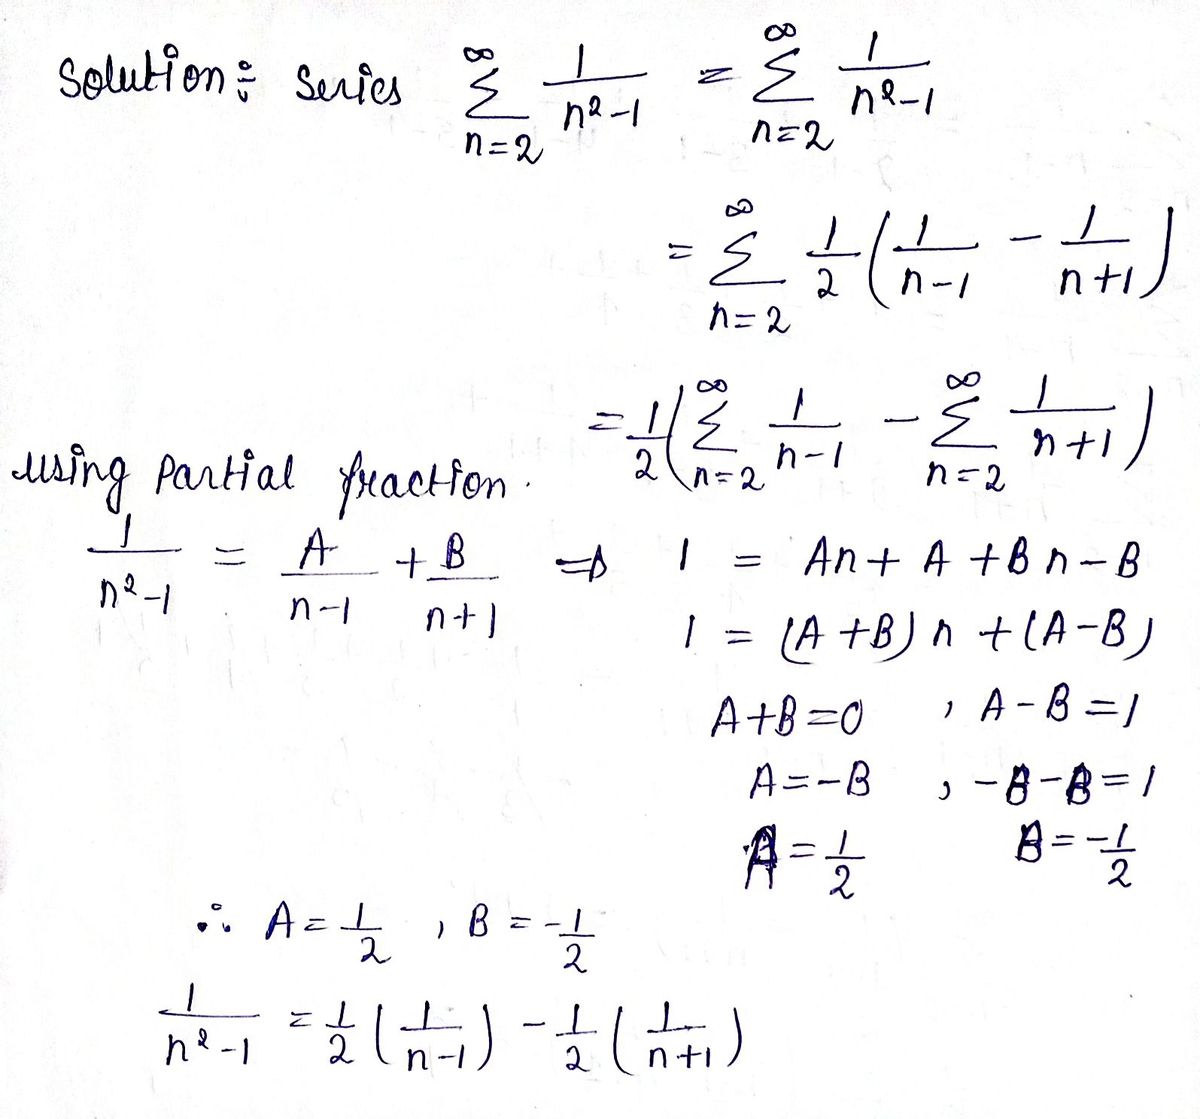 Solution: Series ∑_{n=2}^{∞} 1/(n²-1) = ∑_{n=2}^{∞} 1/(n²-1)
= ∑_{n=2}^{∞} 1/2 (1/(n-1) - 1/(n+1))
= 1/2 (∑_{n=2}^{∞} 1/(n-1) - ∑_{n=2}^{∞} 1/(n+1))
using partial fraction.
1/(n²-1) = A/(n-1) + B/(n+1) ⇒ 1 = An + A + Bn - B
1 = (A+B)n + (A-B)
A+B=0 , A-B=1
A=-B , -B-B=1
A=1/2 B=-1/2
∴ A=1/2 , B=-1/2
1/(n²-1) = 1/2 (1/(n-1)) - 1/2 (1/(n+1))